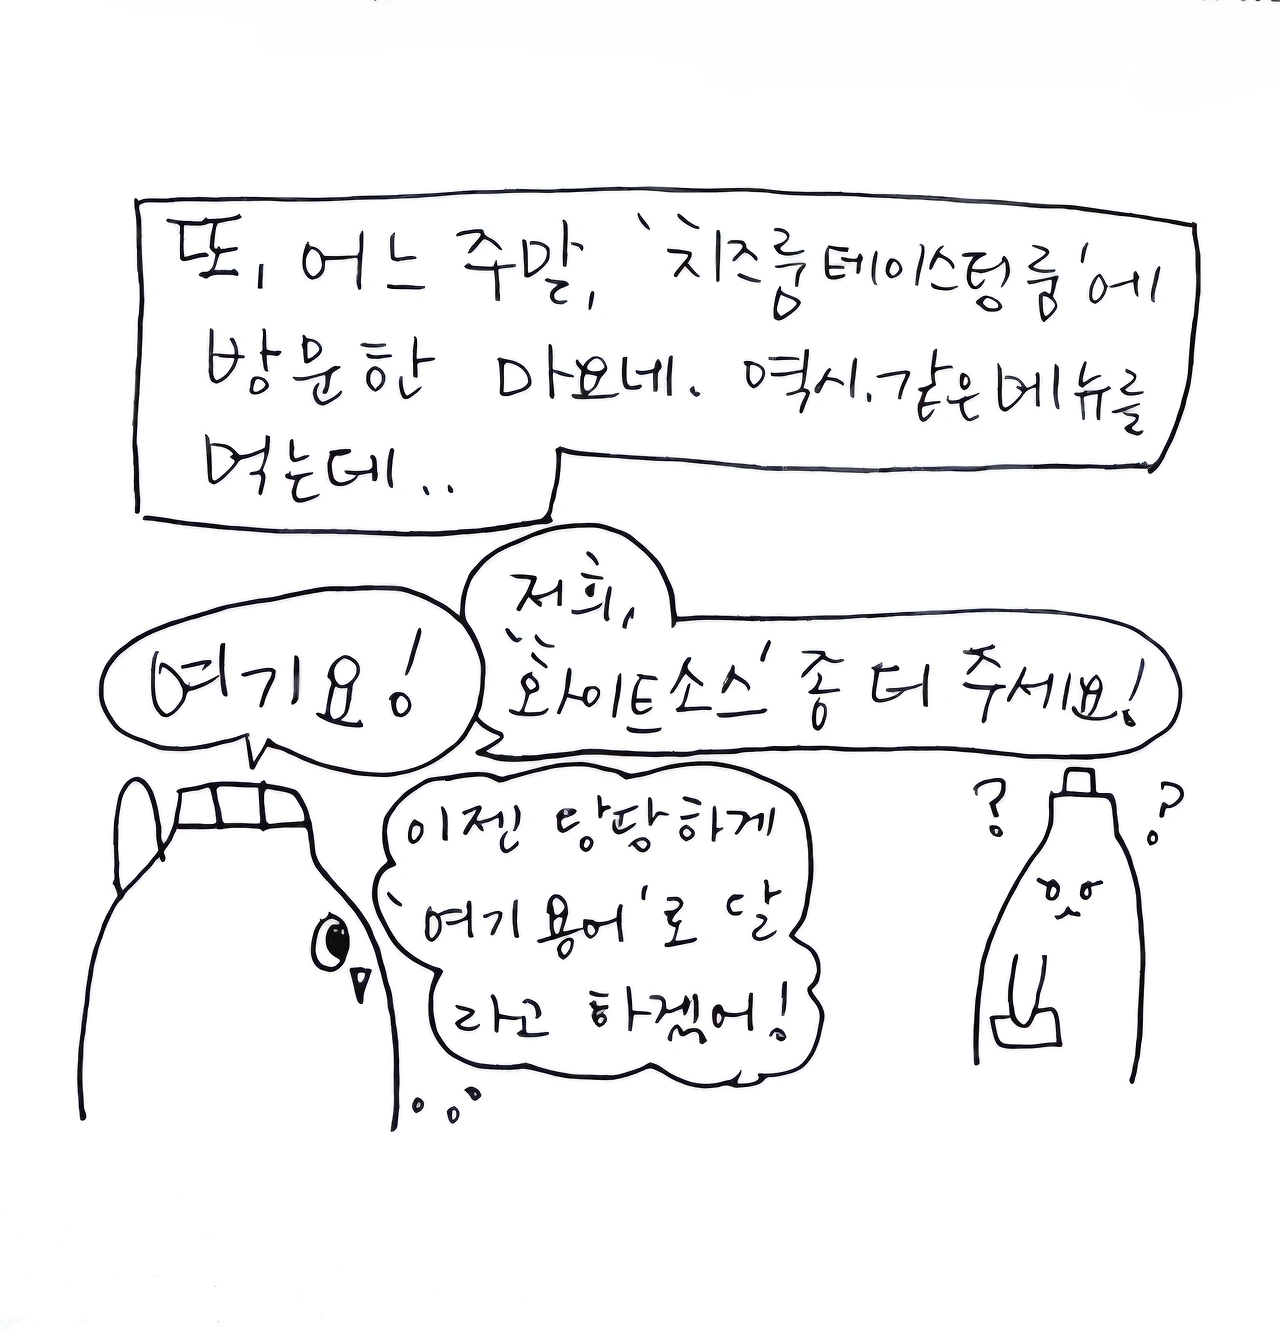 또, 어느 주말, '치즈룸테이스팅룸'에
방문한 마요네. 역시.같은메뉴를
먹는데..
여기요!
저희,
'화이트소스' 좀 더 주세요!
이젠 당당하게
'여기용어'로 달
라고 하겠어!
? ?